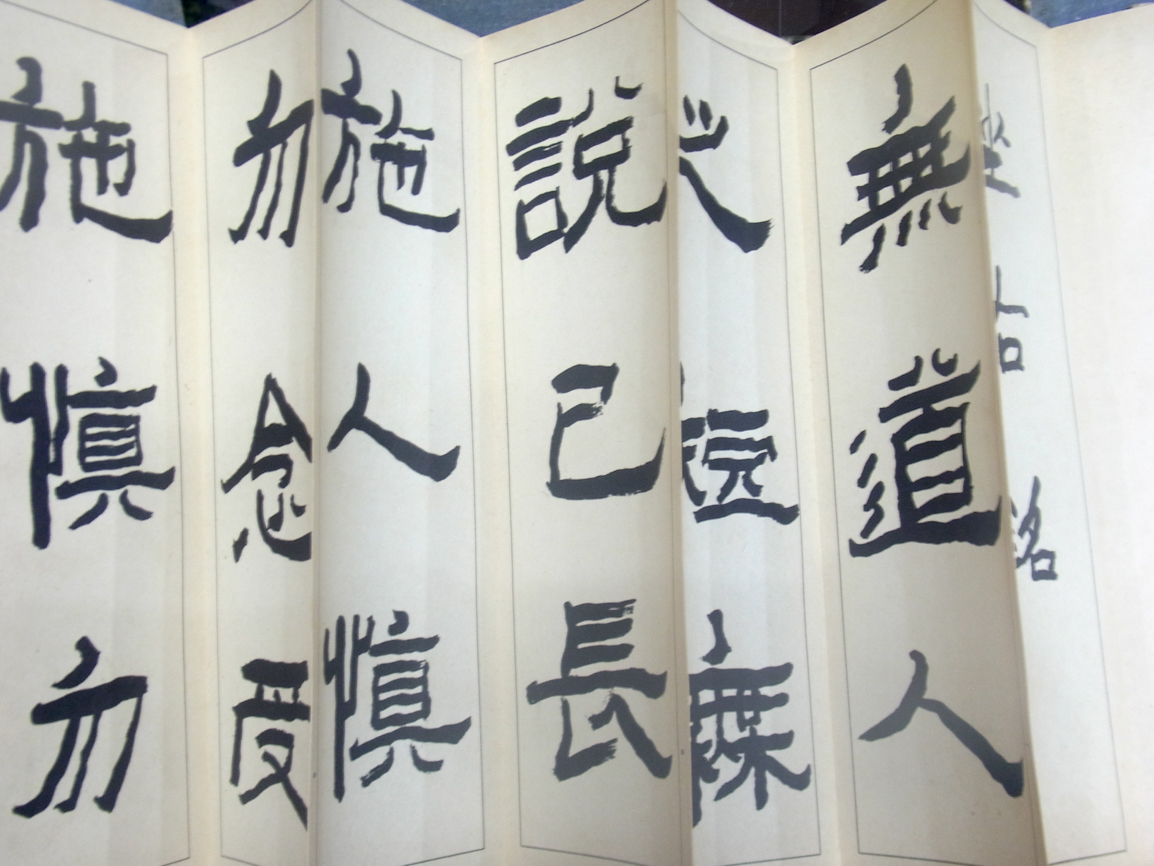 坐右銘
無道人
之短無
說己長
施人慎
勿念受
施慎勿